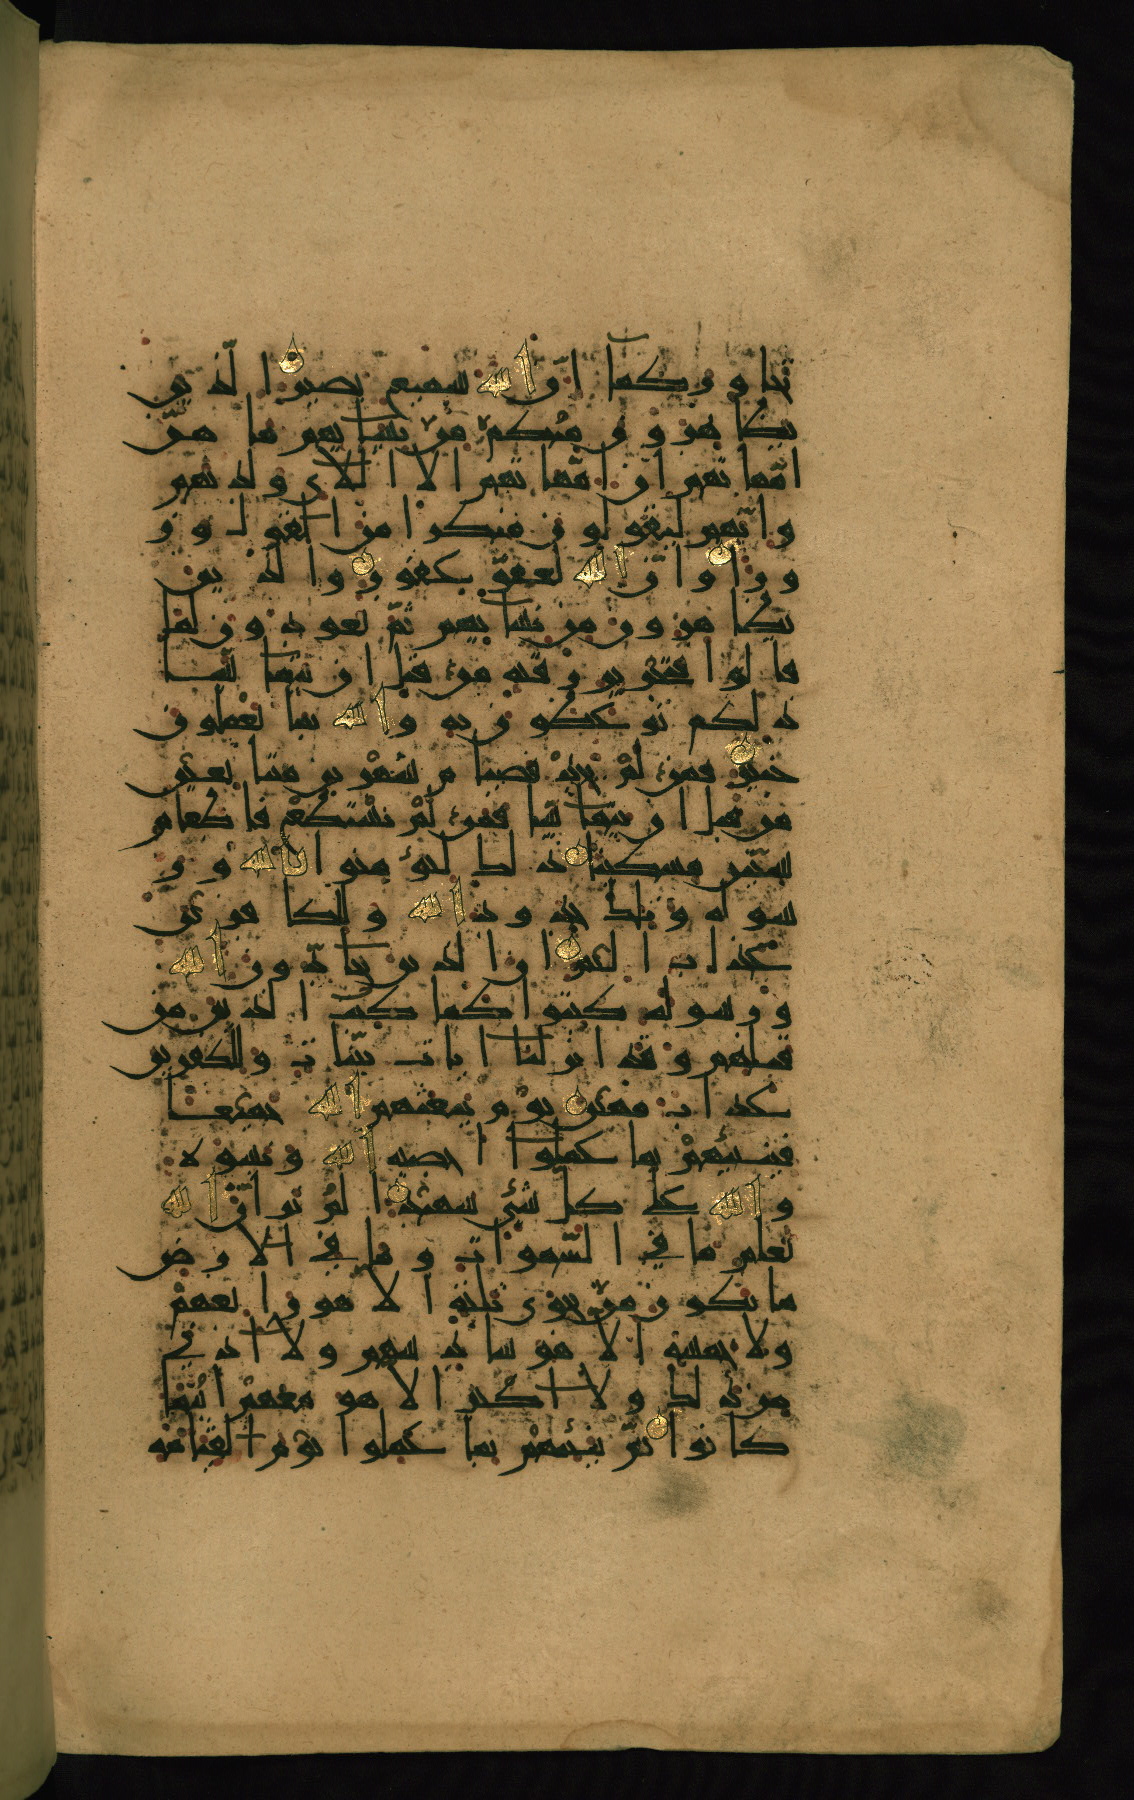 تحاوركما ان الله سميع بصير الذين
يظاهرون منكم من نسائهم ما هنّ
امّهاتهم ان امّهاتهم الا اللائ ولدنهم
وانّهم ليقولون منكرا من القول وز
ورا وانّ الله لعفوّ غفور والذين
يظاهرون من نسائهم ثمّ يعودون لما
قالوا فتحرير رقبة من قبل ان يتماسّا
ذلكم توعظون به والله بما تعملون
خبير فمن لمْ يجدْ فصيام شهْرين متتابعين
من قبل ان يتماسّا فمن لمْ يسْتطعْ فاطعام
ستّين مسكينا ذلك لتؤمنوا بالله ور
سوله وتلك حدود الله وللكافرين
عذاب اليم انّ الذين يحادّون الله
ورسوله كبتوا كما كبت الذين من
قبلهم وقد انزلنا ايات بيّنات وللكفرين
عذاب مهين يوْم يبعثهم الله جميعا
فينبئهمْ بما عملوا احصيه الله ونسوه
والله على كل شئ شهيد المْ تر انّ الله
يعلم ما في السّموات وما في الارض
ما يكون من نجوى ثلثة الا هو رابعهمْ
ولا خمسة الا هو سادسهم ولا ادنى
من ذلك ولا اكثر الا هو معهمْ اينما
كانوا ثمّ ينبئهمْ بما عملوا يوْم القيامة